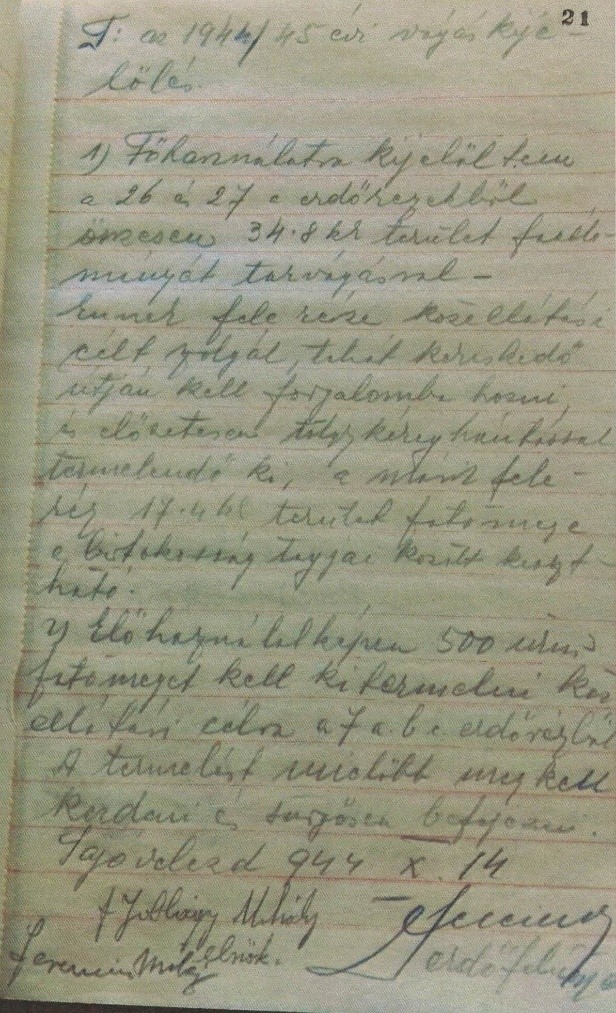 21
T: az 1944/45 évi vágás kije-
lölés.
1) Főhasználatra kijelöltem
a 26 és 27 a erdőrészekből
összesen 34.8 kh terület faállo-
mányát tarvágással -
ennek fele része közellátási
célt szolgál, tehát kereskedő
útján kell forgalomba hozni,
és előzetesen tölgykéreghántással
termelendő ki, a másik fele-
rész 17.4 kh terület fatömege
a birtokosság tagjai között kioszt-
ható.
2) Előhasználatképen 500 ürm³
fatömeget kell kitermelni köz
ellátási célra a 7 a. b c erdőrészből
A termelést mielőbb meg kell
kezdeni és sürgősen befejezni.
Sajóvelezd 944 X. 14
Mihály
elnök.
Ferencz
erdőfelügy